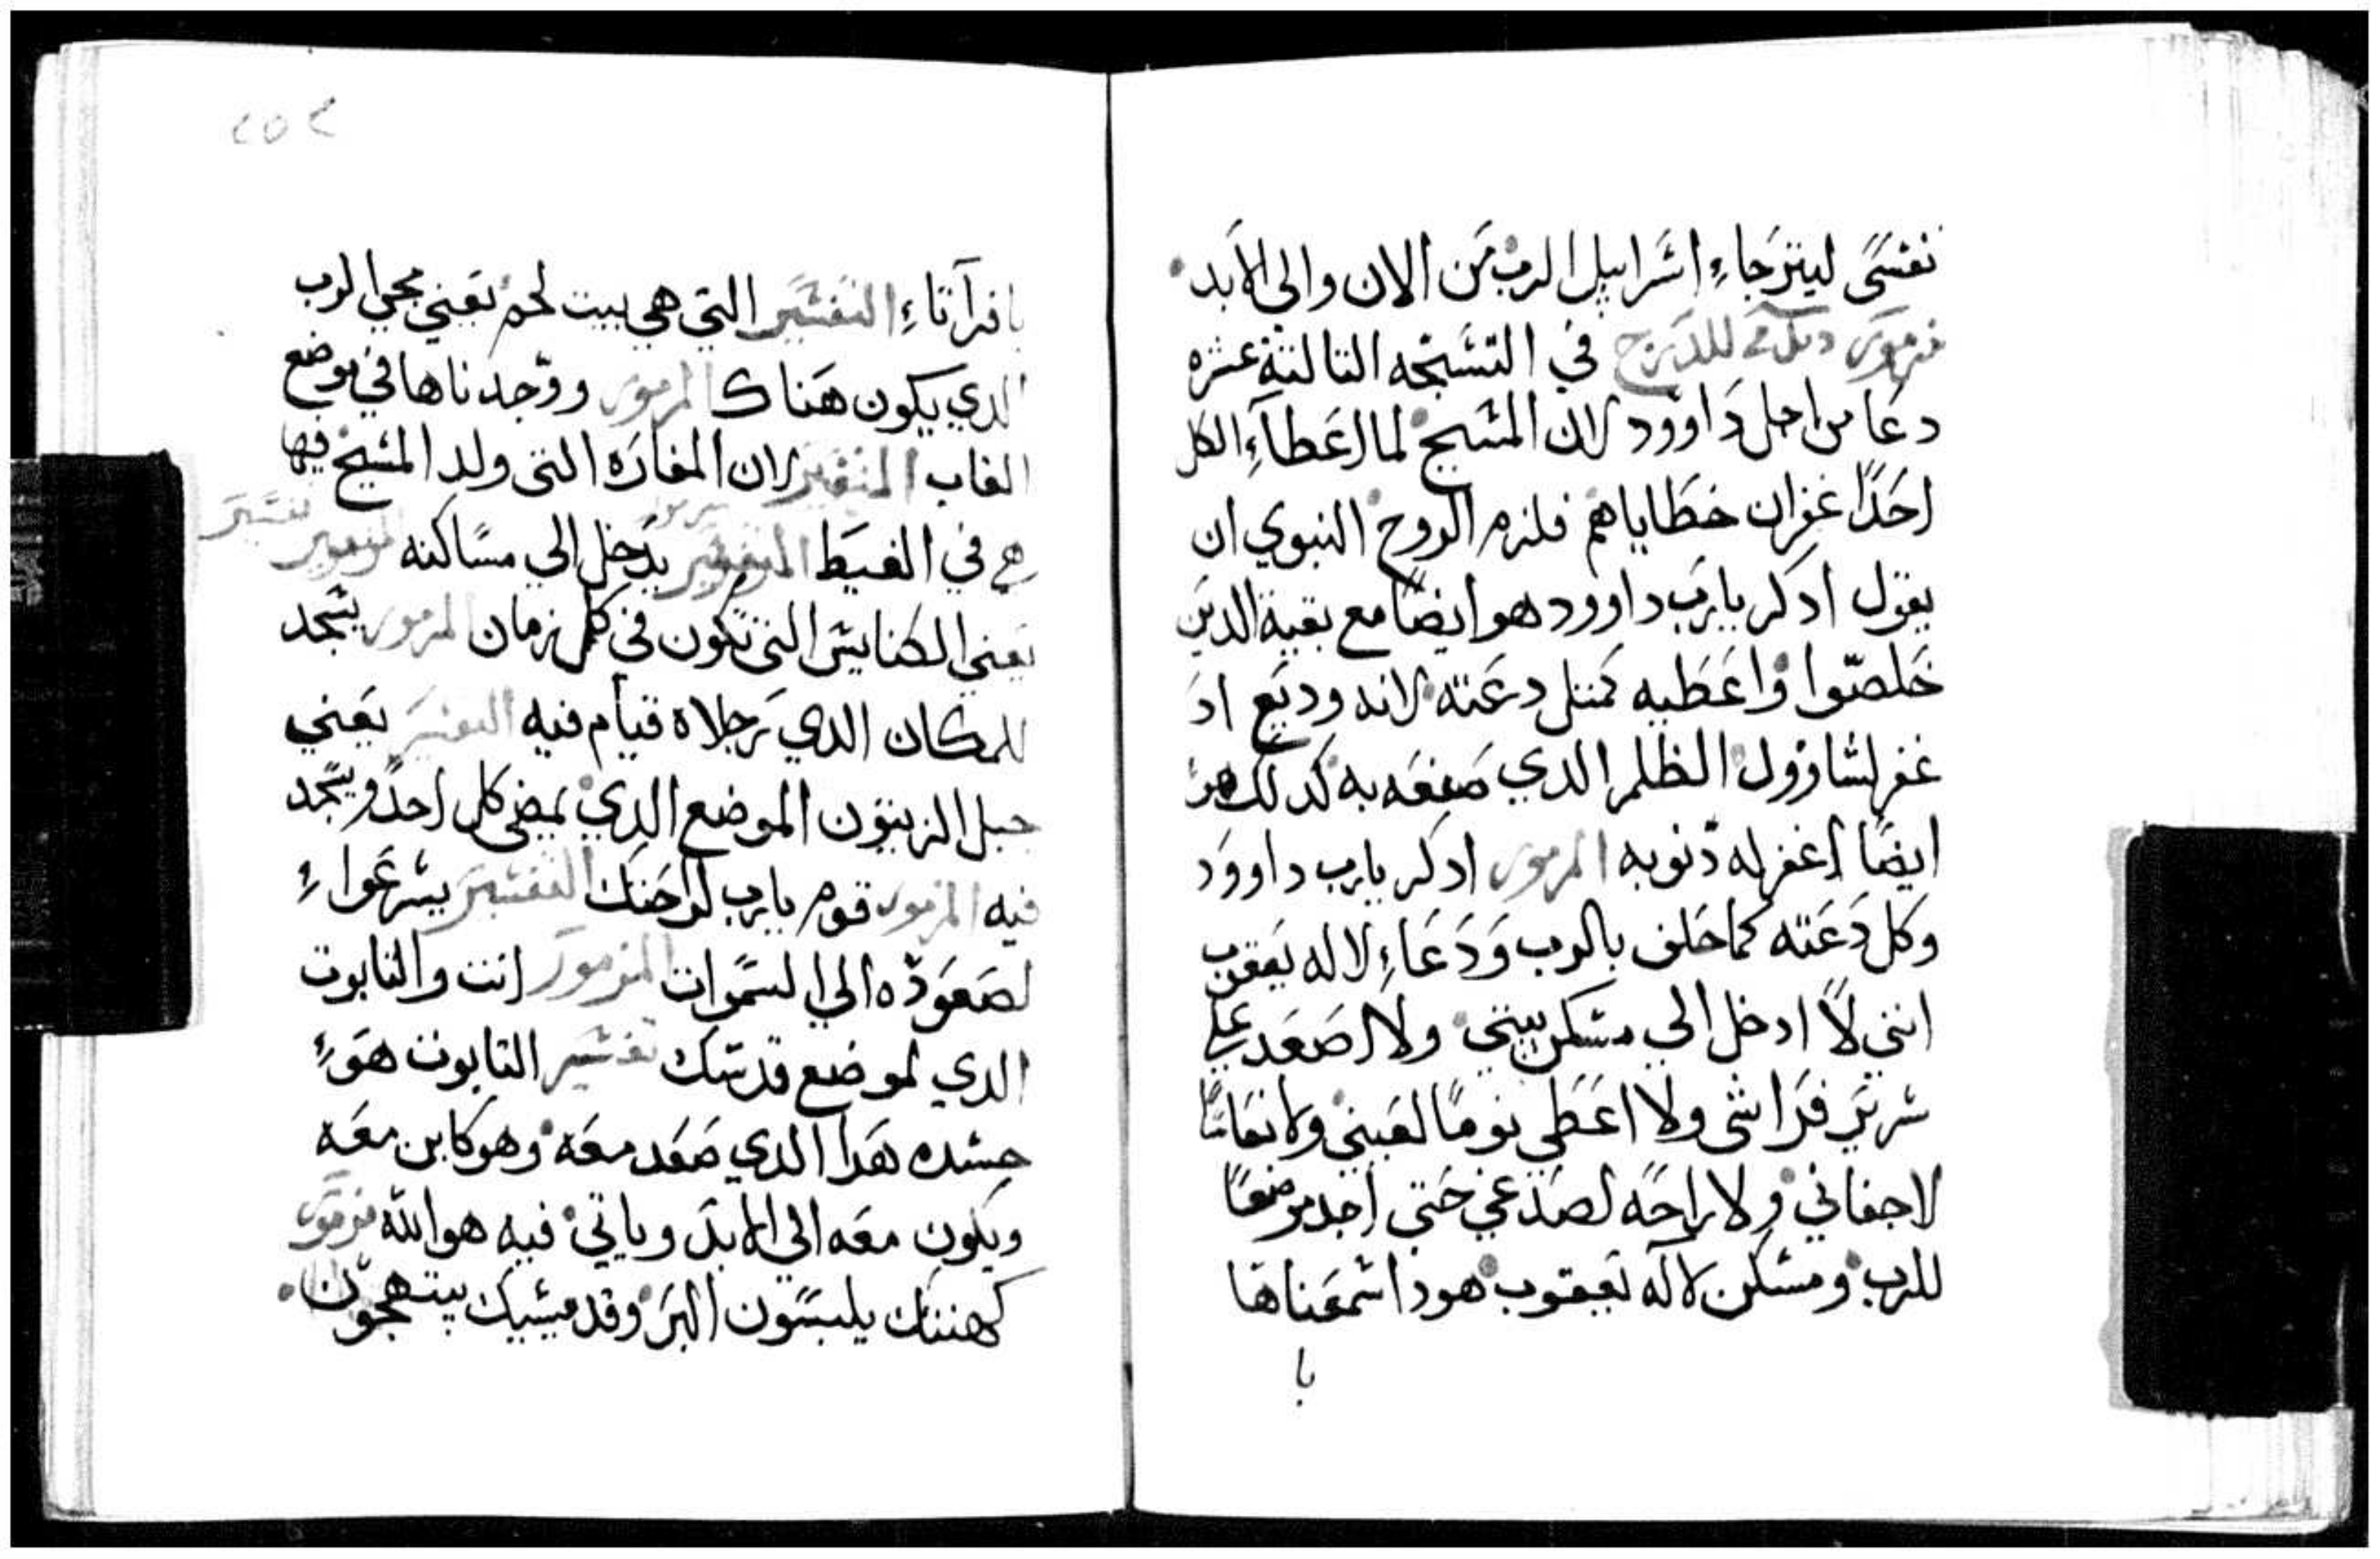 نفسي ليترجاء اسراييل الرب من الان والى الابد
مزمور للدرج في التسبحه التالتة عشره
دعا من اجل داوود لان المسيح لما اعطاء الكل
احدًا غفران خطاياهم فلزم الروح النبوي ان
يقول ادكر يارب داوود هو ايضًا مع بقية الدين
خلصوا واعطيه كمتل دعته لانه وديع اد
غفر لشاوول الظلم الدي صنعه به كدلك هو
ايضًا اغفر له دنوبه المزمور ادكر يارب داوود
وكل دعته كما حلف بالرب ودعاء لاله يعقوب
انني لا ادخل الي مسكن بيتي ولا اصعد علي
سرير فراشي ولا اعطي نومًا لعيني ولا نعاسًا
لاجفاني ولا راحه لصدغي حتى اجد موضعًا
للرب ومسكن لاله يعقوب هودا سمعناها
با
٢٥٢
بافراتاء التفسير التي هي بيت لحم يعني مجي الرب
الدي يكون هناك المزمور ووجدناها في موضع
الغاب التفسير لان المغاره التي ولد المسيح فيها
هي في الغيط المزمور يدخل الي مساكنه تفسير
يعني الكنايس التي تكون في كل زمان المزمور يسجد
للمكان الدي رجلاه قيام فيه التفسير يعني
جبل الزيتون الموضع الدي يمضي كل احدًا ويسجد
فيه المزمور قوم يارب لراحتك التفسير يسرعواء
لصعوده الي السموات المزمور انت والتابوت
الدي لموضع قدسك تفسير التابوت هوء
جسده هدا الدي صعد معه وهو كاين معه
ويكون معه الي الابد وياتي فيه هو الله مزمور
كهنتك يلبسون البر وقديسيك يبتهجون